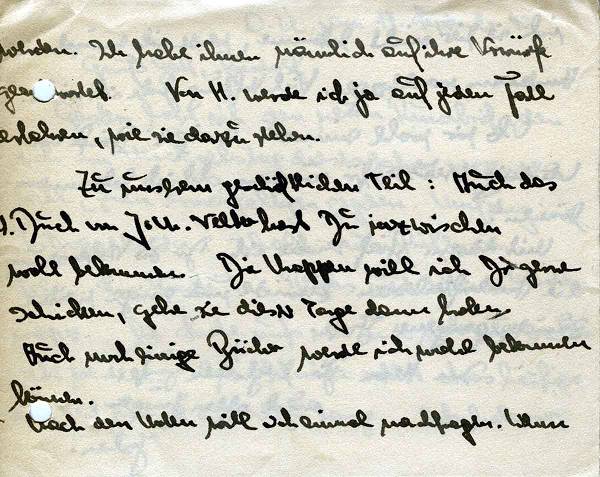 werden. Ich habe ihnen nämlich auf ihre Vorwürfe
geantwortet. Von H. werde ich ja auf jeden Fall
erfahren, wie sie dazu stehen.
Zu unserem geschäftlichen Teil: Auch das
Buch von Joh. hast Du inzwischen
wohl bekommen. Die Mappen will ich Dir gerne
schicken, gehe sie diese Tage dann holen.
Auch noch einige Bücher werde ich wohl bekommen
können.
Nach den Noten will ich einmal nachfragen. Wenn